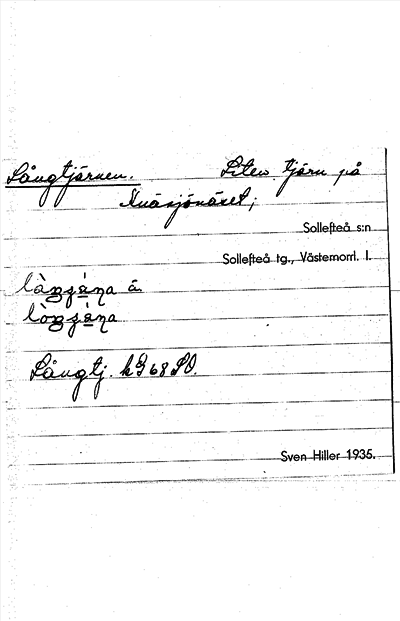 Långtjärnen. Liten tjärn på
Knäsjönäset;
Sollefteå s:n
Sollefteå tg., Västernorrl. l.
Långtj. kG 68 SO.
Sven Hiller 1935.